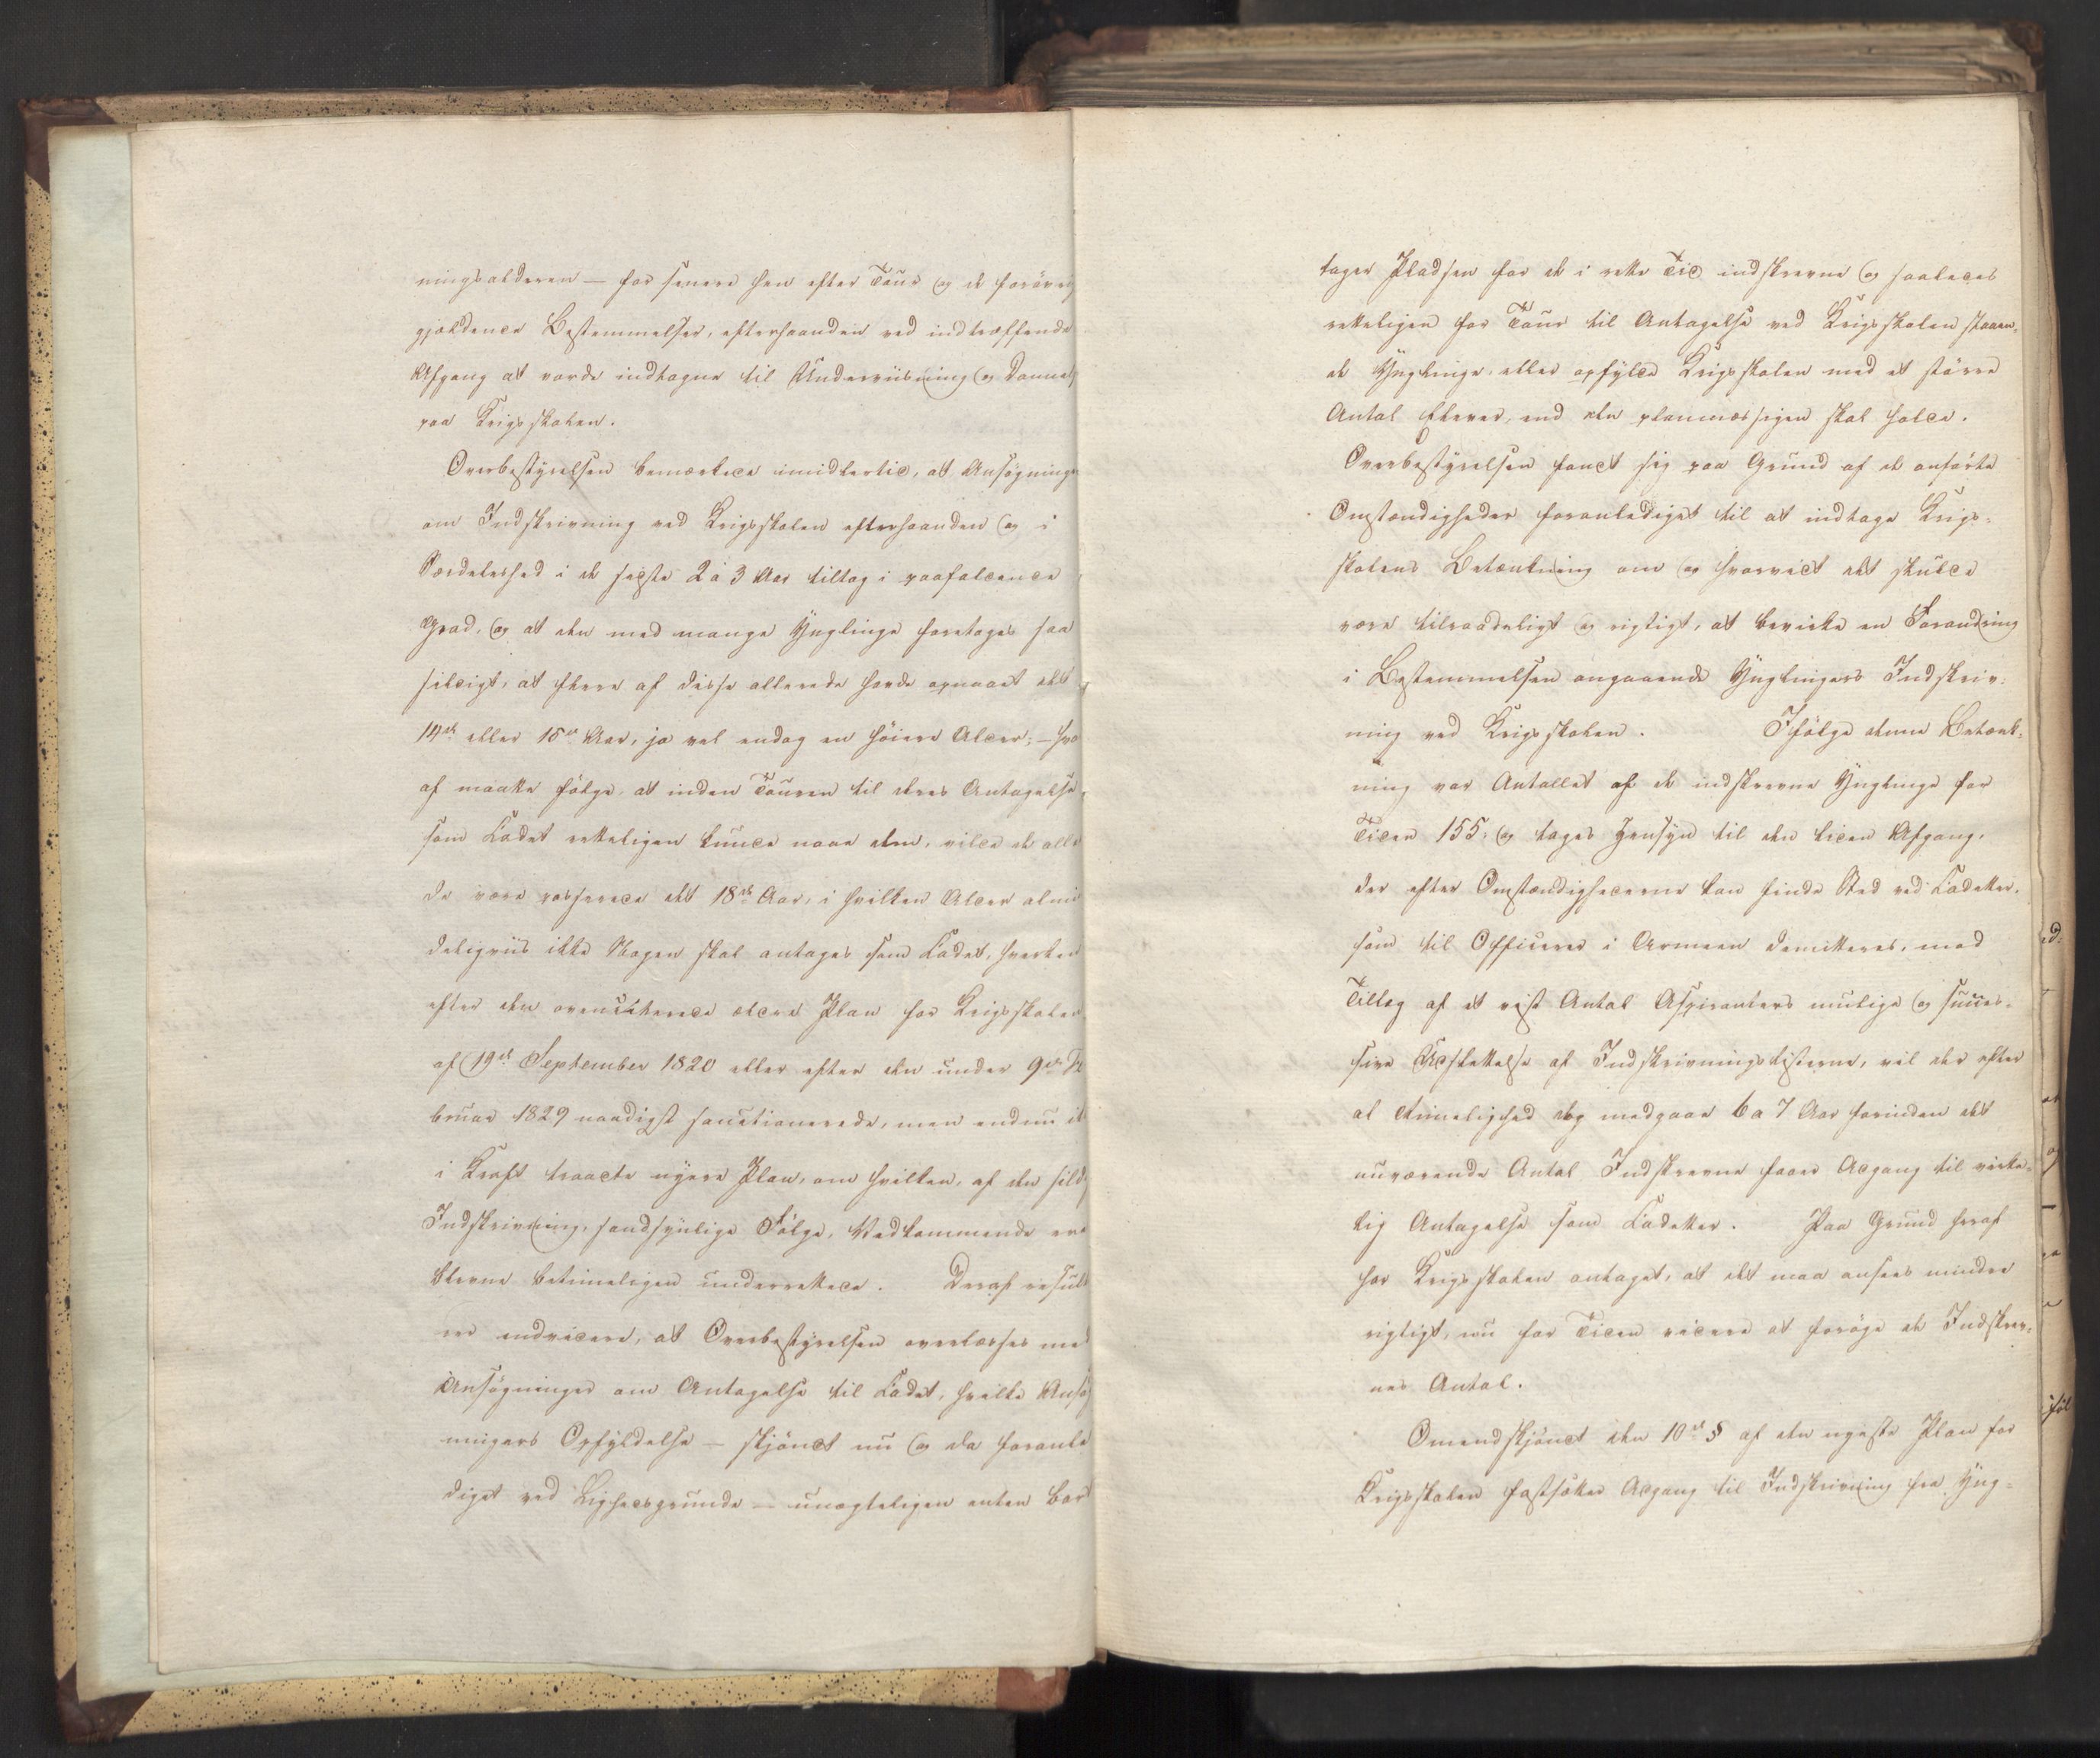 ningsalderen — for senere hen efter Tour og de forøvrig
gjældende Bestemmelser, efterhaanden ved indtræffende
Afgang at vorde indtagne til Underviisning og Dannels
paa Krigsskolen.
Overbestyrelsen bemærkede imidlertid, at Ansøgninge
om Indskrivning ved Krigsskolen efterhaanden og i
Særdeleshed i de sidste 2 à 3 Aar tiltog i paafaldende
Grad, og at den med mange Ynglinge foretages saa
sildigt, at flere af disse allerede havde opnaaet det
14de eller 15de Aar, ja vel endog en høiere Alder; — hvo
af maatte følge, at inden Touren til deres Antagelse
som Cadet retteligen kunde naae dem, vilde de alle
de være passerede det 18de Aar, i hvilken Alder almi
deligviis ikke Nogen skal antages som Cadet, hverken
efter den ovenciterede ældre Plan for Krigsskolen
af 19de September 1820 eller efter den under 9de Fe
bruar 1829 naadigst sanctionerede, men endnu ik
i Kraft traadte nyere Plan, om hvilken, af den sildi
Indskrivning, sandsynlige Følge, Vedkommende ere
blevne betimeligen underrettede. Deraf resulte
rer endvidere, at Overbestyrelsen overlæsses med
Ansøgninger om Antagelse til Cadet, hvilke Ansøg
ningers Opfyldelse — skjøndt nu og da foranle
diget ved Lighedsgrunde — unægteligen enten bort
tager Pladsen for de i rette Tid indskrevne og saaledes
retteligen for Tour til Antagelse ved Krigsskolen staaen-
de Ynglinge, eller opfylde Krigsskolen med et større
Antal Elever, end den planmæssigen skal holde.
Overbestyrelsen fandt sig paa Grund af de anførte
Omstændigheder foranlediget til at indtage Krigs-
skolens Betænkning om og hvorvidt det skulde
være tilraadeligt og rigtigt, at bevirke en Forandring
i Bestemmelsen angaaende Ynglingers Indskriv-
ning ved Krigsskolen. Ifølge denne Betænk-
ning var Antallet af de indskrevne Ynglinge for
Tiden 155, og tages Hensyn til den liden Afgang,
der efter Omstændighederne kan finde Sted ved Cadetter,
som til Officerer i Armeen demitteres, med
Tillæg af et vist Antal Aspiranters mulige og succes-
sive Udslettelse af Indskrivningslisterne, vil der efter
al Rimelighed dog medgaae 6 a 7 Aar forinden det
nuværende Antal Indskrevne faaer Adgang til virke-
lig Antagelse som Cadetter. Paa Grund heraf
har Krigsskolen antaget, at det maa ansees mindre
rigtigt, nu for Tiden videre at forøge de Indskrev-
nes Antal.
Omendskjøndt den 10de § af den nyeste Plan for
Krigsskolen fastsætter Adgang til Indskrivning fra Yng-